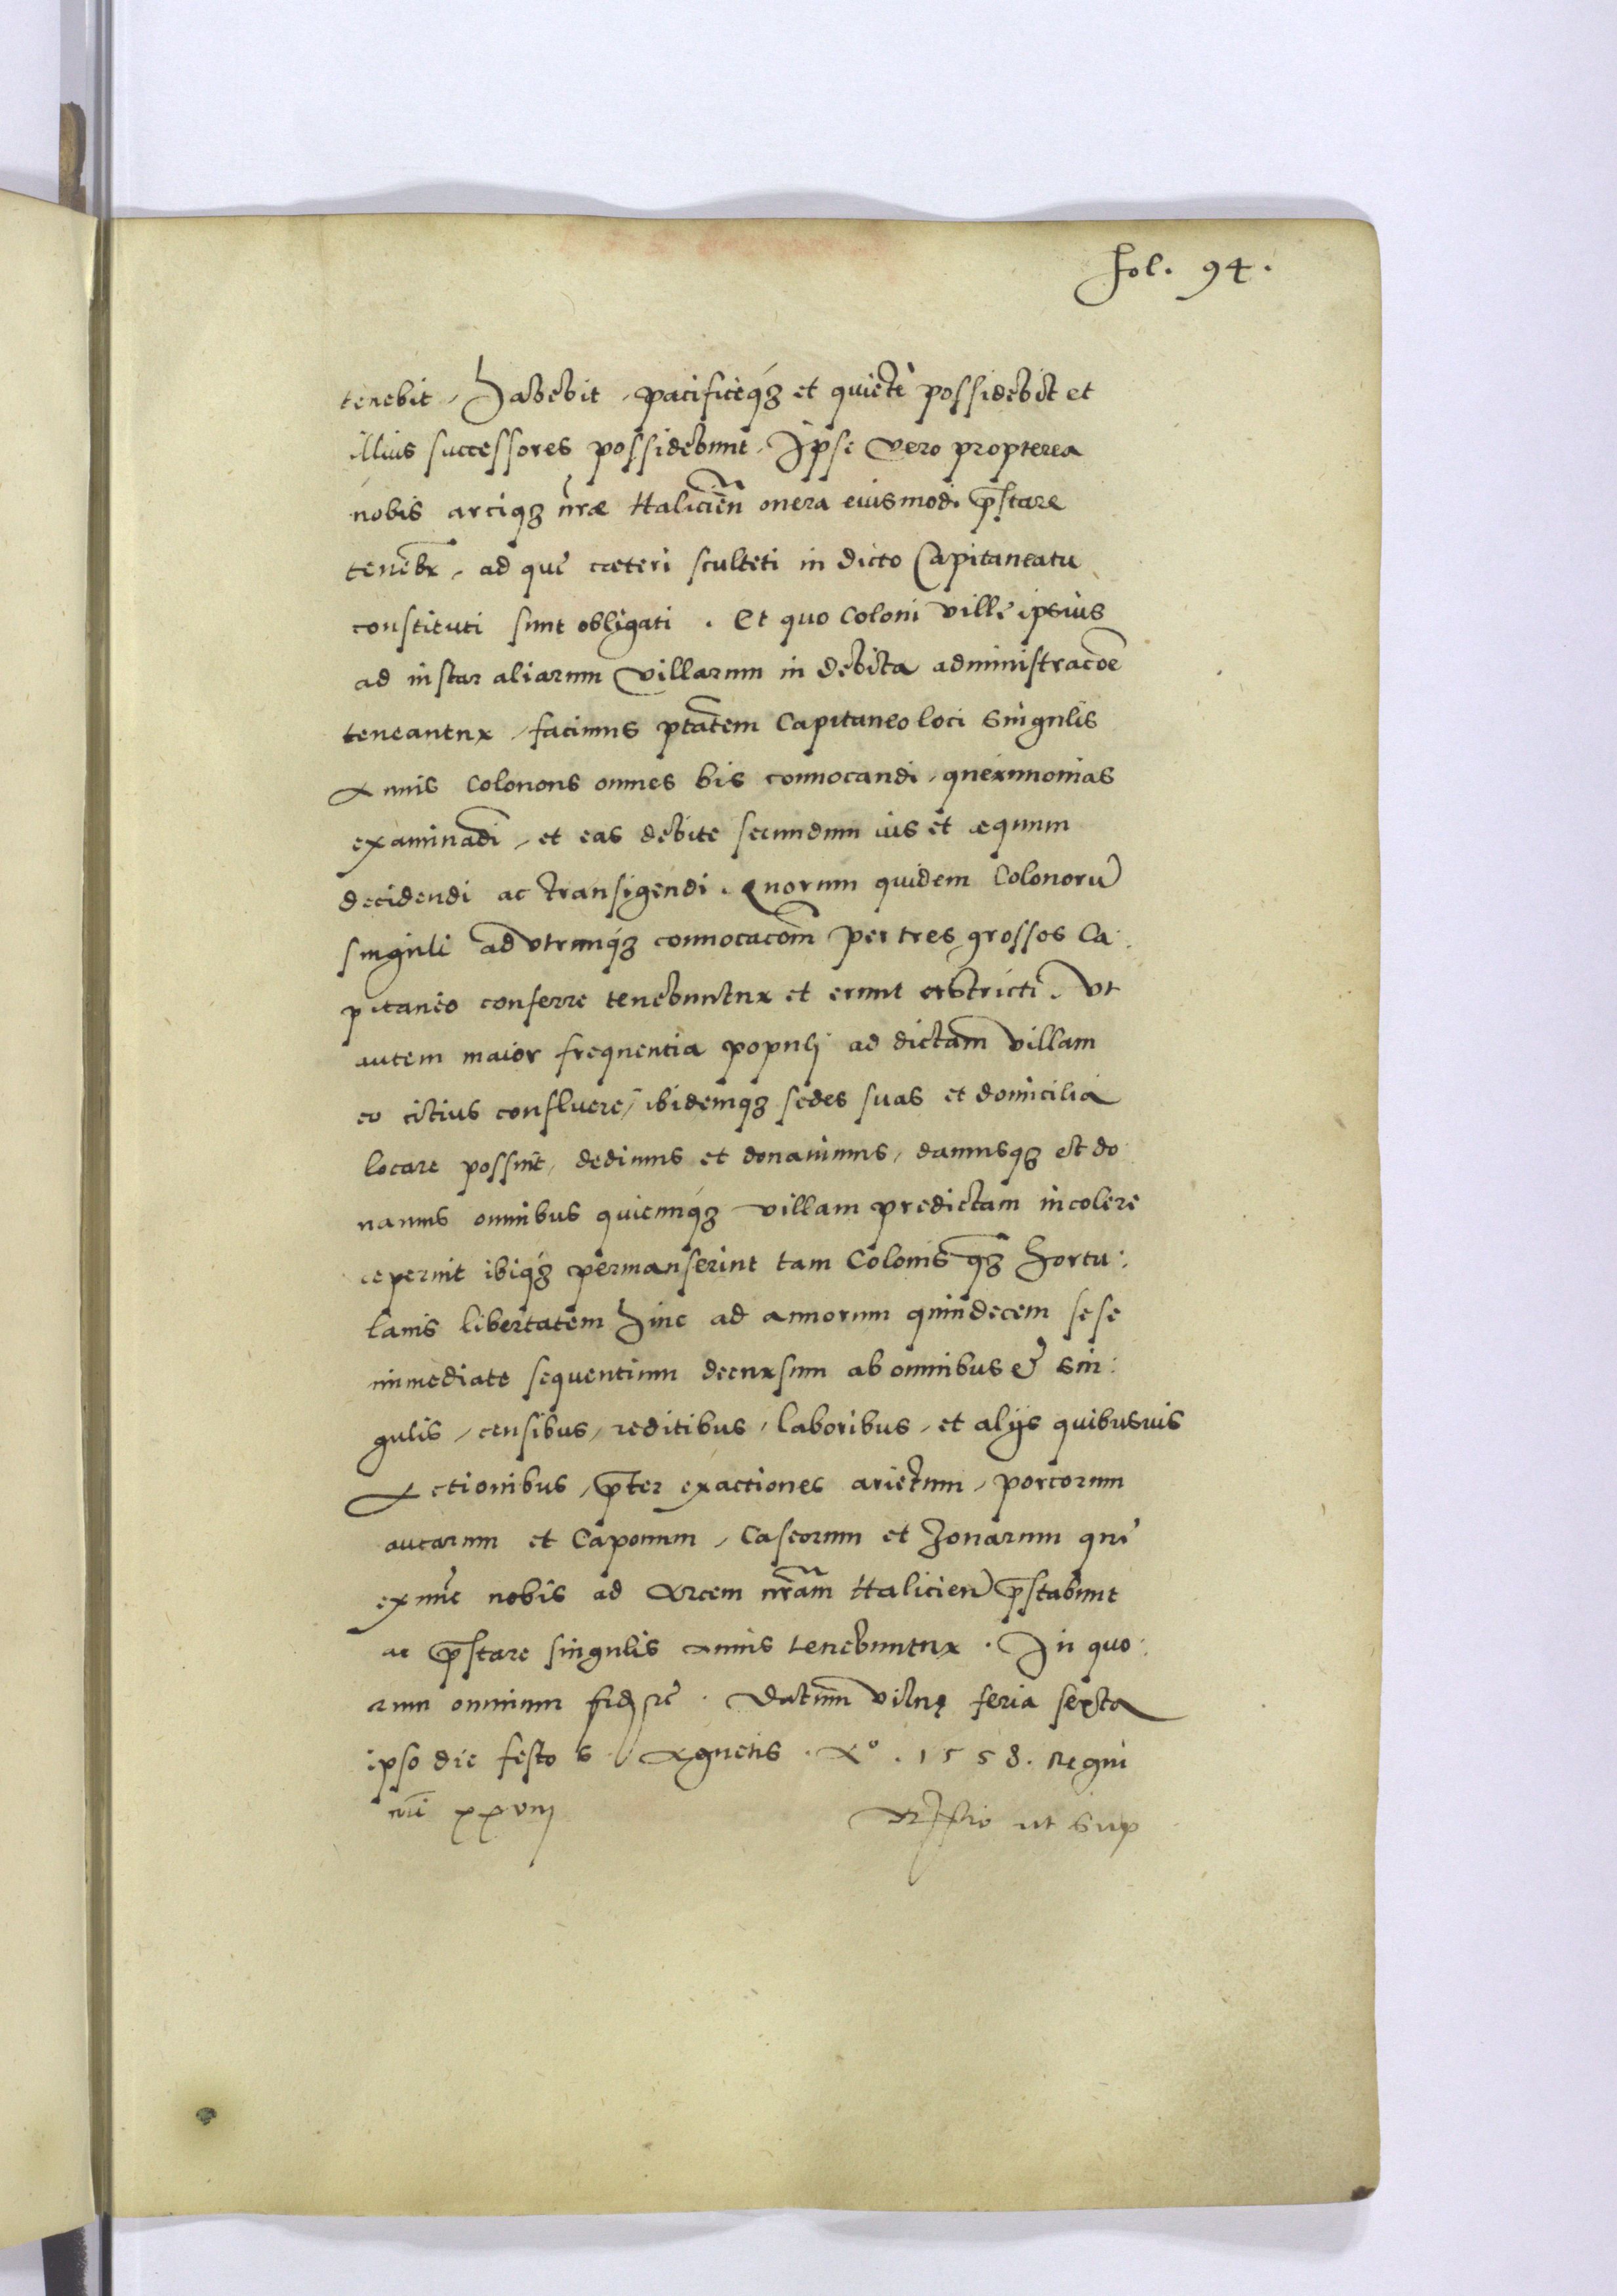 fol. 94.
tenebit, habebit, pacificeqȝ et quietè possidebit et
illius successores possidebunt. Ipse vero propterea
nobis arciqȝ nr̃æ Halicieñ onera eiusmodi p̃stare
tenebr̃, ad quę cæteri sculteti in dicto Capitaneatu
constituti sunt obligati. Et quo Coloni villę ipsius
ad instar aliarum villarum in debita administracõe
teneantur, facimus ptãtem Capitaneo loci singulis
Annis Colonons omnes bis conuocandi, querimonias
examinãdi, et eas debite secundum ius et æquum
decidendi ac transigendi. Quorum quidem Colonorũ
singuli ad vtrunqȝ conuocacõm per tres grossos Ca:
pitaneo conferre tenebuntur et erunt astricti. Vt
autem maior frequentia populi ad dictam villam
eo citius confluere, ibidemqȝ sedes suas et domicilia
locare possint, dedimus et donauimus, damusqȝ et do
namus omnibus quicunqȝ villam predictam incolere
ceperint ibiqȝ permanserint tam Colonis qȝ̃ hortu:
lanis libertatem hinc ad annorum quindecem sese
immediate sequentium decursum ab omnibus et sin:
gulis, censibus, reditibus, laboribus, et alijs quibusuis
Actionibus, p̃ter exactiones arietum, porcorum
aucarum et Caponum, Caseorum et Zonarum quę
ex nũc nobis ad Arcem nr̃am Halicieñ p̃stabunt
ac p̃stare singulis annis tenebuntur. In quo:
rum omnium fidẽ &c. Datum Vilnę feria sexta
ipso die festo S. Agnetis. A°. 1558. Regni
nr̃i xxviij
Rl̃tio ut sup